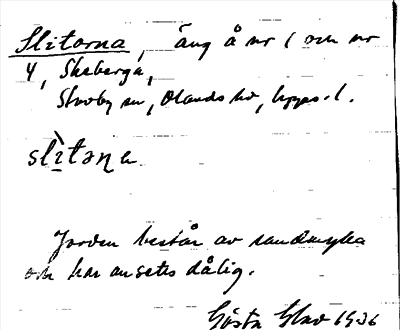 Slitorna, äng å nr 1 och nr
4, Skeberga,
Skorby sn, Olands hd, Upps. l.
slìtəṇa
Jorden består av sandmylla
och har ansetts dålig.
Gösta 1936